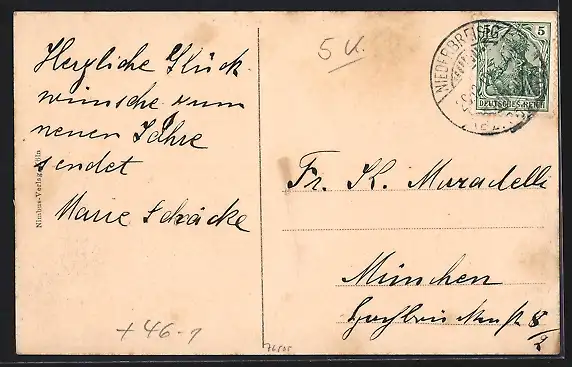 Herzliche Glück
wünsche zum
neuen Jahre
sendet
Marie
Nimbus-Verlag, Köln
+ 46-1
76505
5 V.
NIEDERBREISIG
5
DEUTSCHES REICH
Fr. K. Muradelli
München
8/2